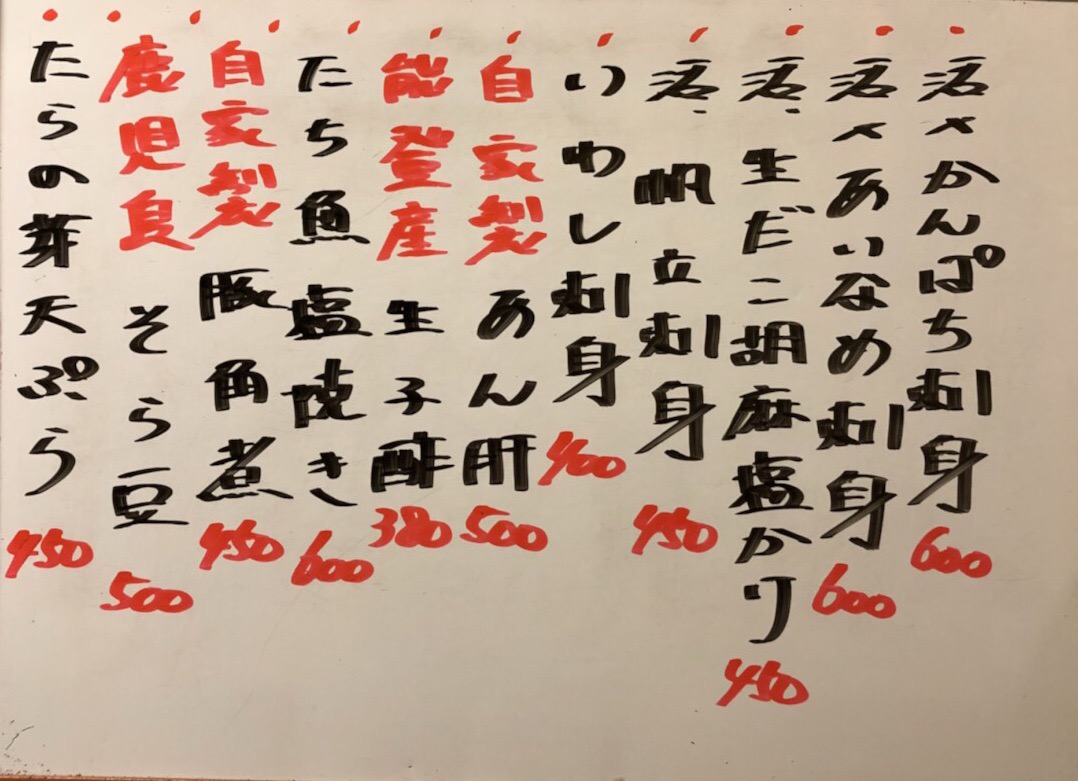 活〆かんぱち刺身 600
活〆あいなめ刺身 600
活、生だこ胡麻塩かり 450
活、帆立刺身 450
いわし刺身 400
自家製 あん肝 500
能登産 生子酢 380
たち魚塩焼き 600
自家製 豚角煮 450
鹿児島 そら豆 500
たらの芽天ぷら 450